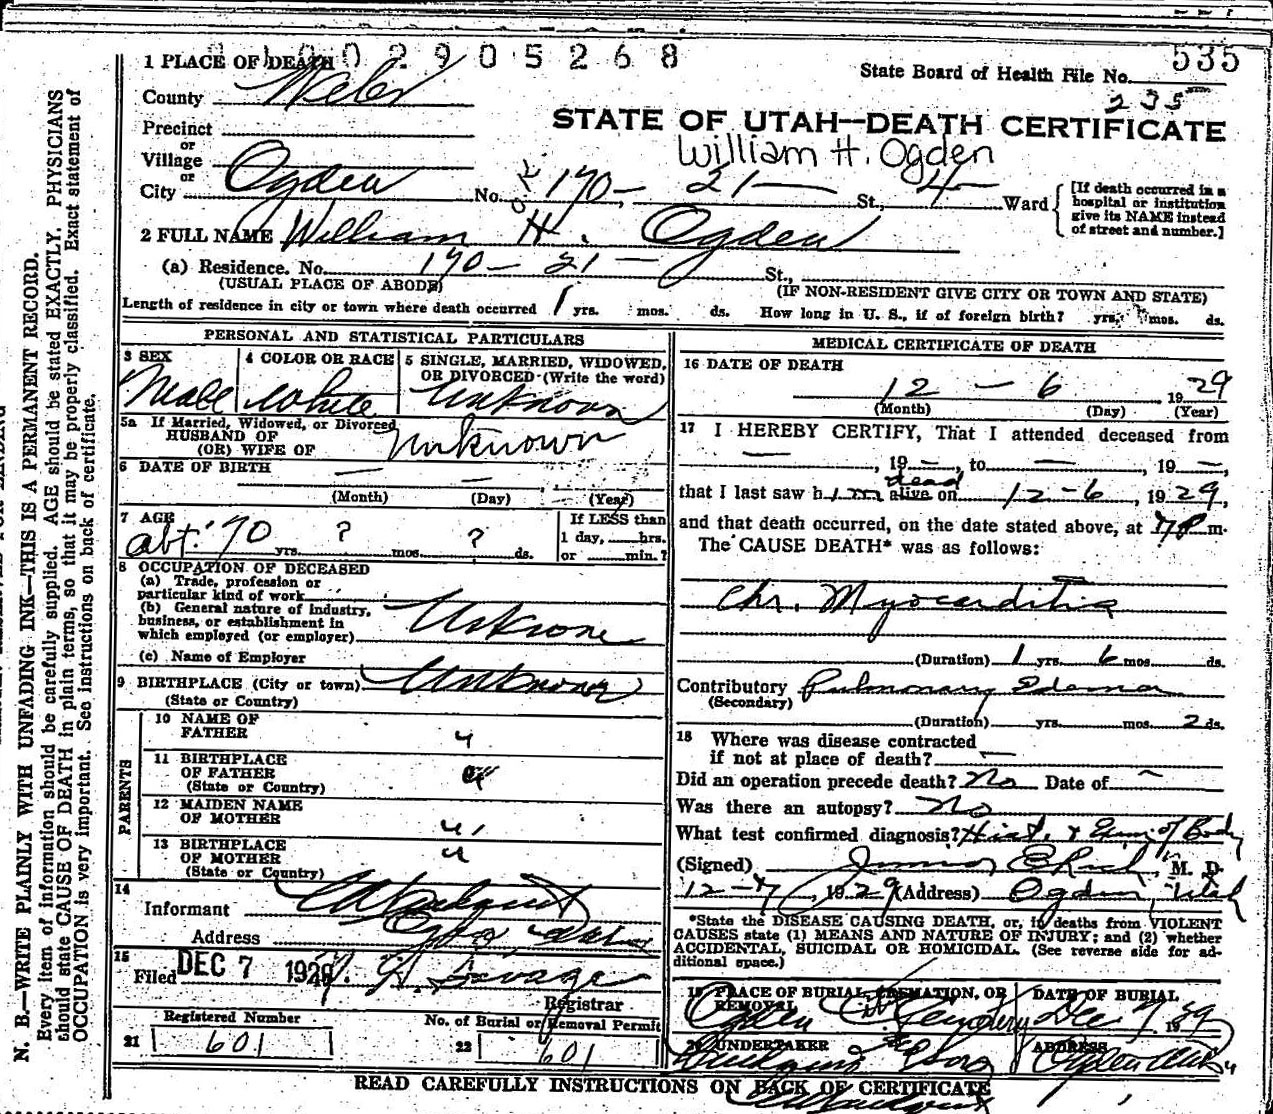 0 2 9 0 5 2 6 8
535
1 PLACE OF DEATH
State Board of Health File No.
235
County Weber
STATE OF UTAH—DEATH CERTIFICATE
Precinct
or
William H. Ogden
Village
or
City Ogden No. 170 - 21 — St., 4 — Ward
[If death occurred in a
hospital or institution
give its NAME instead
of street and number.]
2 FULL NAME William H. Ogden
(a) Residence. No. 170 - 21 — St.,
(USUAL PLACE OF ABODE)
(IF NON-RESIDENT GIVE CITY OR TOWN AND STATE)
Length of residence in city or town where death occurred 1 yrs. mos. ds. How long in U. S., if of foreign birth? yrs. mos. ds.
PERSONAL AND STATISTICAL PARTICULARS
3 SEX
Male
4 COLOR OR RACE
White
5 SINGLE, MARRIED, WIDOWED,
OR DIVORCED (Write the word)
Unknown
5a If Married, Widowed, or Divorced
HUSBAND OF
(OR) WIFE OF Unknown
6 DATE OF BIRTH — —
(Month) (Day) (Year)
7 AGE
abt. 70 yrs. ? mos. ? ds.
If LESS than
1 day, hrs.
or min.?
8 OCCUPATION OF DECEASED
(a) Trade, profession or
particular kind of work
(b) General nature of industry,
business, or establishment in
which employed (or employer) Unknown
(c) Name of Employer
9 BIRTHPLACE (City or town) Unknown
(State or Country)
PARENTS
10 NAME OF
FATHER u
11 BIRTHPLACE
OF FATHER u
(State or Country)
12 MAIDEN NAME
OF MOTHER u
13 BIRTHPLACE
OF MOTHER u
(State or Country)
14
Informant
Address Ogden Utah
15
Filed DEC 7 1929 Savage
Registrar
Registered Number
No. of Burial or Removal Permit
21 601
22 601
MEDICAL CERTIFICATE OF DEATH
16 DATE OF DEATH
12 - 6 1929
(Month) (Day) (Year)
17 I HEREBY CERTIFY, That I attended deceased from
—, 19 —, to —, 19 —,
dead
that I last saw him alive on 12-6, 1929,
and that death occurred, on the date stated above, at 7 P m.
The CAUSE DEATH* was as follows:
Chr. Myocarditis
(Duration) 1 yrs. 6 mos. ds.
Contributory Pulmonary Edema
(Secondary)
(Duration) yrs. mos. 2 ds.
18 Where was disease contracted
if not at place of death? —
Did an operation precede death? No Date of —
Was there an autopsy? No
What test confirmed diagnosis? Hist. & Exam. of Body
(Signed) M. D.
12-7, 1929 (Address) Ogden, Utah
*State the DISEASE CAUSING DEATH, or, in deaths from VIOLENT
CAUSES state (1) MEANS AND NATURE OF INJURY; and (2) whether
ACCIDENTAL, SUICIDAL OR HOMICIDAL. (See reverse side for ad-
ditional space.)
19 PLACE OF BURIAL, CREMATION, OR
REMOVAL
Ogden Cemetery
DATE OF BURIAL
Dec 7 1929
20 UNDERTAKER
ADDRESS
Ogden Utah
READ CAREFULLY INSTRUCTIONS ON BACK OF CERTIFICATE
N. B.—WRITE PLAINLY WITH UNFADING INK—THIS IS A PERMANENT RECORD.
Every item of information should be carefully supplied. AGE should be stated EXACTLY. PHYSICIANS
should state CAUSE OF DEATH in plain terms, so that it may be properly classified. Exact statement of
OCCUPATION is very important. See instructions on back of certificate.